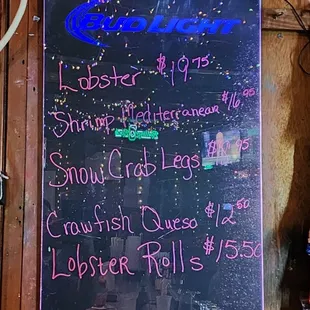 BUD LIGHT
Lobster $19.75
Shrimp Mediterranean $16.95
Snow Crab Legs
Crawfish Queso $12.50
Lobster Rolls $15.50